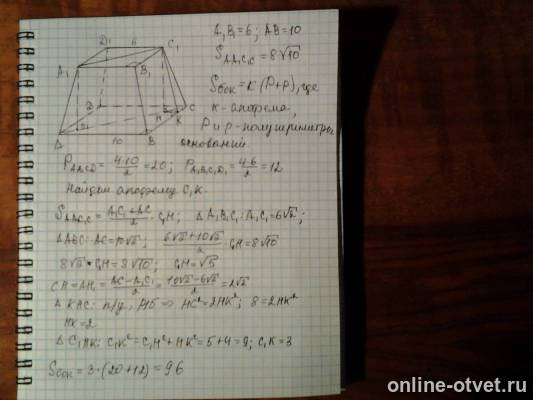 A₁B₁=6; AB=10
S_AA₁C₁C = 8√10
Sбок = к (P+p), где
к - апофема,
P и p - полупериметры
оснований.
D₁ 6 C₁
A₁ B₁
D C
H K
A 10 B
P_ABCD = 4·10/2 = 20; P_A₁B₁C₁D₁ = 4·6/2 = 12
Найдём апофему C₁K.
S_AA₁C₁C = (A₁C₁+AC)/2 · C₁H; Δ A₁B₁C₁: A₁C₁=6√2;
ΔABC: AC=10√2; (6√2+10√2)/2 · C₁H = 8√10
8√2 · C₁H = 8√10; C₁H = √5
CH = AH₁ = (AC-A₁C₁)/2 = (10√2-6√2)/2 = 2√2
Δ KHC: п/у, р/б ⇒ HC²=2HK²; 8=2HK²
HK=2
Δ C₁HK: C₁K²=C₁H²+HK²=5+4=9; C₁K=3
Sбок = 3·(20+12) = 96
online-otvet.ru